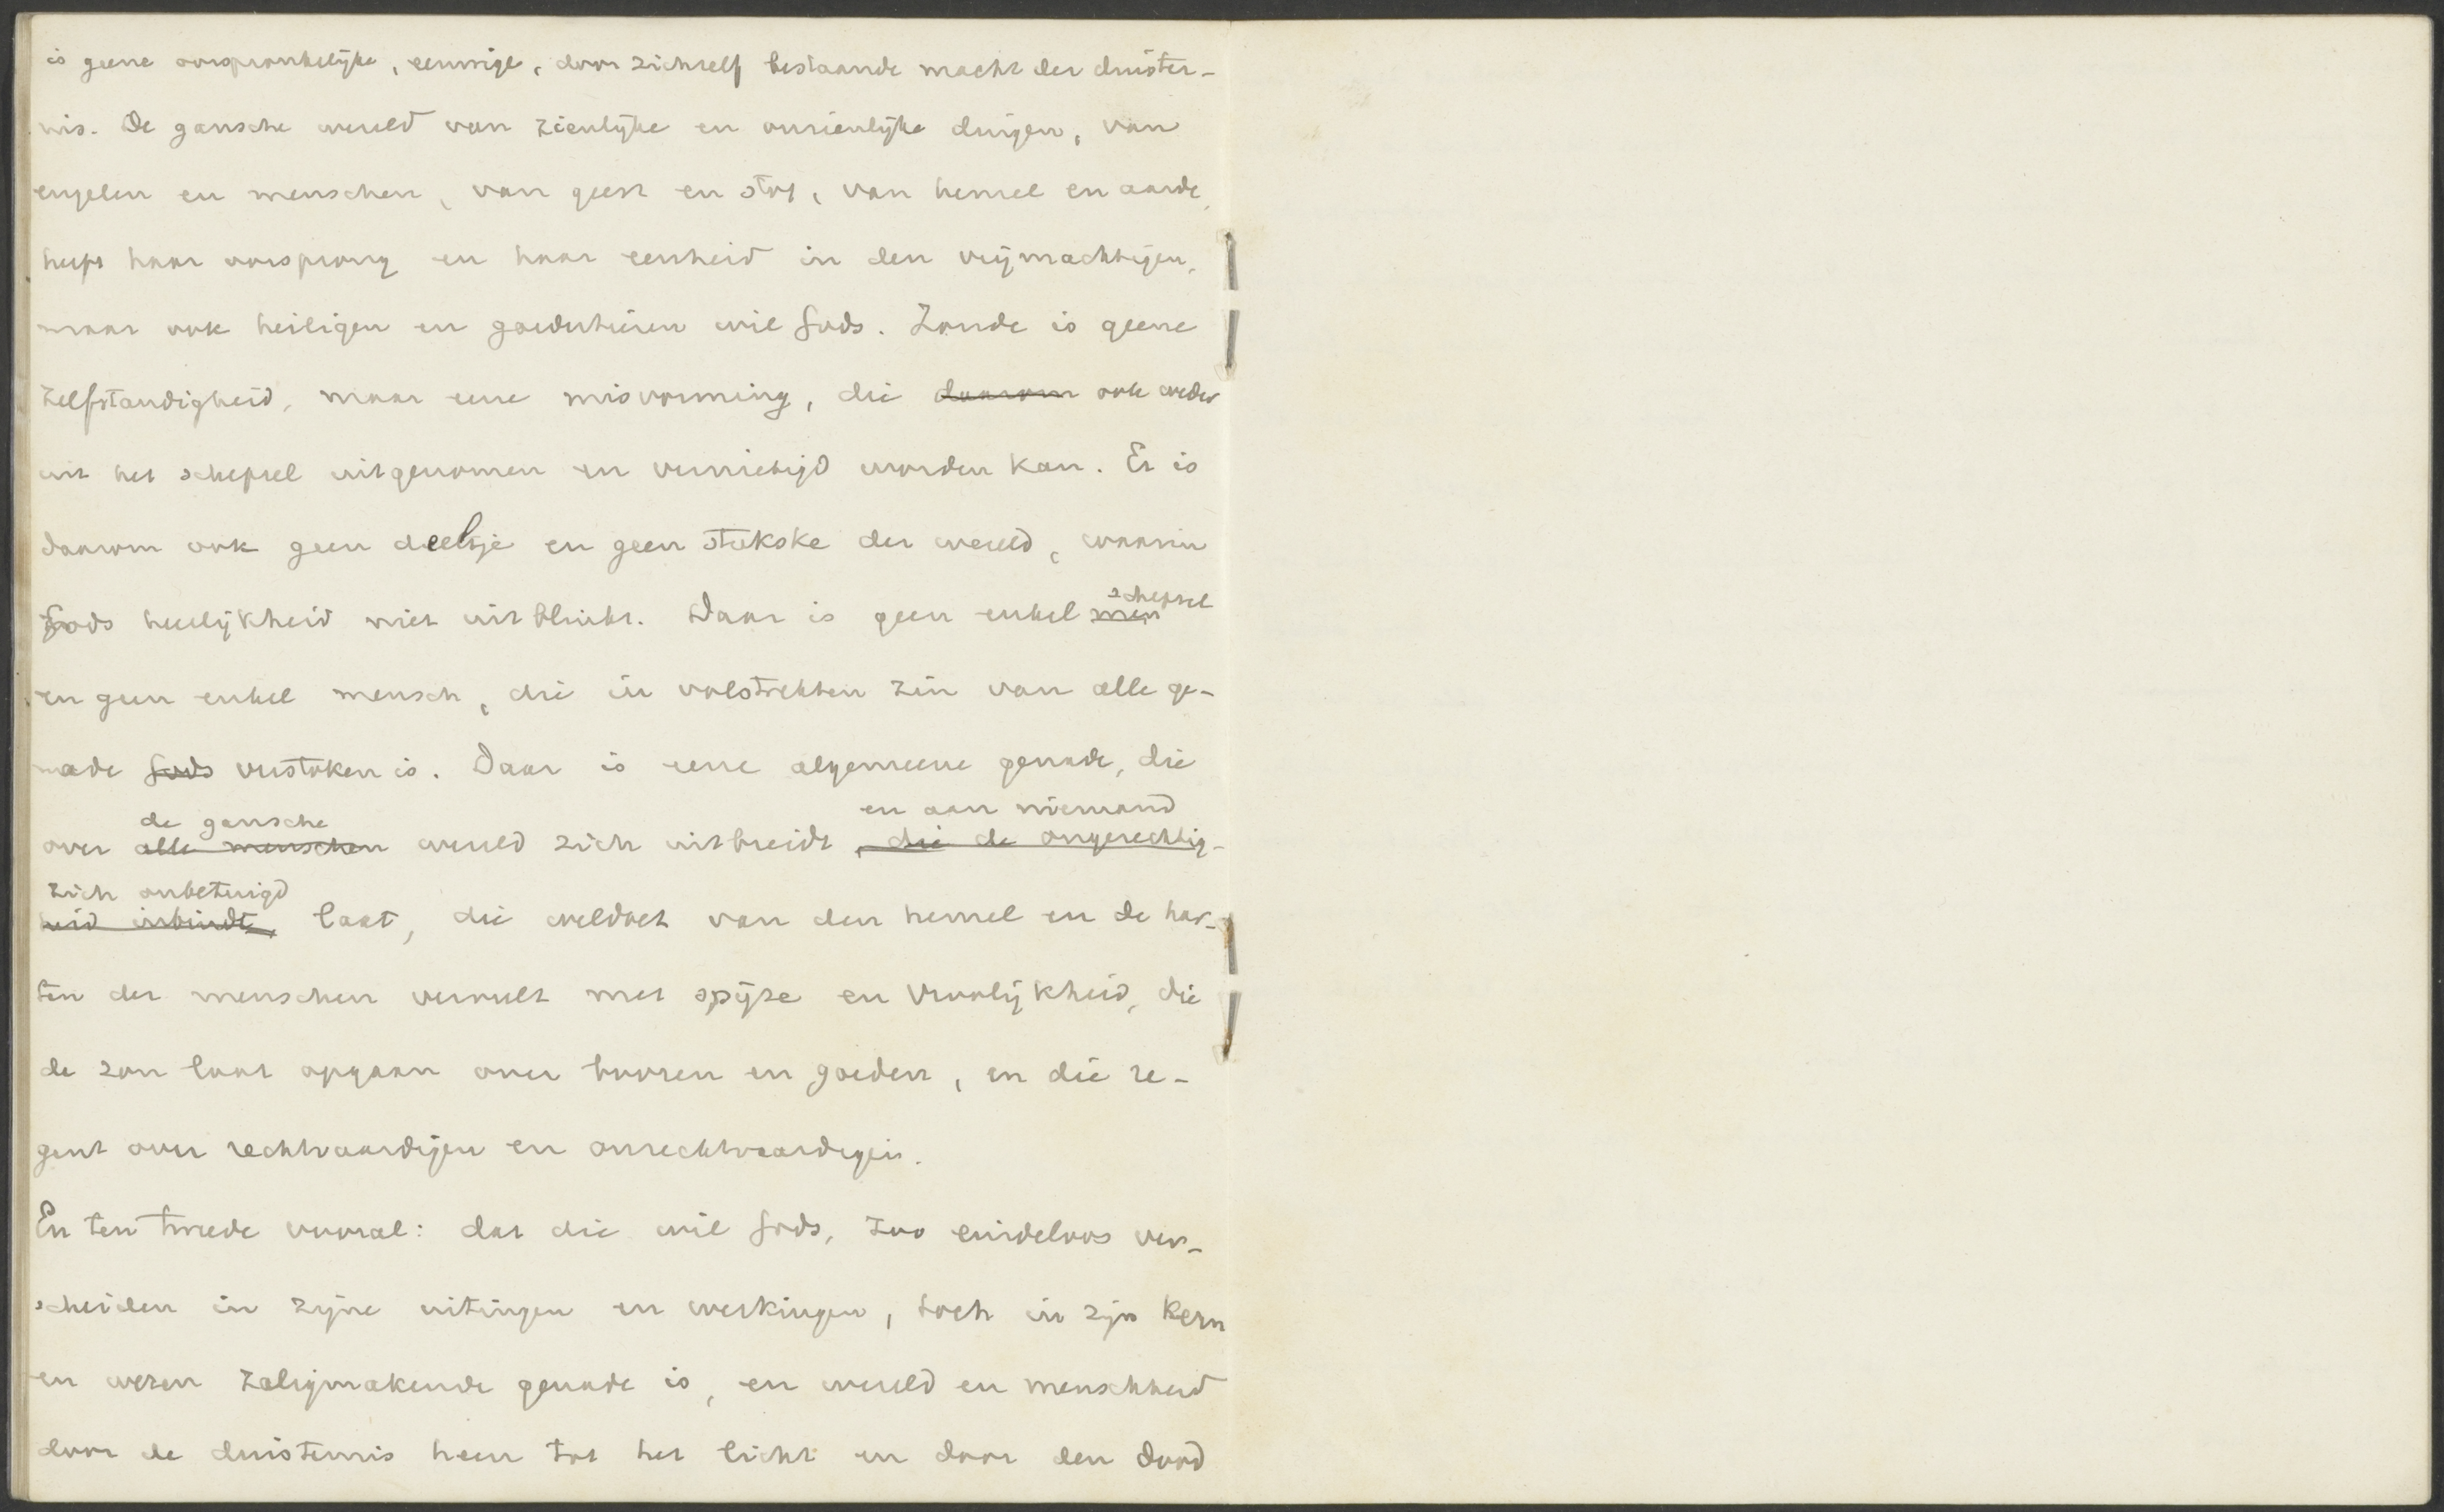 is geene oorspronkelijke, eeuwige, door zichzelf bestaande macht der duister-
nis. De gansche wereld van zienlijke en onzienlijke dingen, van
engelen en menschen, van geest en stof, van hemel en aarde,
heeft haar oorsprong en haar eenheid in den vrijmachtigen,
maar ook heiligen en goedertieren wil Gods. Zonde is geene
zelfstandigheid, maar eene misvorming, die daarom ook weder
uit het schepsel uitgenomen en vernietigd worden kan. Er is
daarom ook geen deeltje en geen stukske der wereld, waarin
schepsel
Gods heerlijkheid niet uitblinkt. Daar is geen enkel men
en geen enkel mensch, die in volstrekten zin van alle ge-
nade Gods verstoken is. Daar is eene algemeene genade, die
de gansche en aan niemand
over alle menschen wereld zich uitbreidt, die de ongerechtig-
zich onbetuigd
heid inbindt, laat, die weldoet van den hemel en de har-
ten der menschen vervult met spijze en vroolijkheid, die
de zon laat opgaan over boozen en goeden, en die re-
gent over rechtvaardigen en onrechtvaardigen.
En ten tweede vooral: dat die wil Gods, zoo eindeloos ver-
scheiden in zijne uitingen en werkingen, toch in zijn kern
en wezen zaligmakende genade is, en wereld en menschheid
door de duisternis heen tot het licht en door den dood